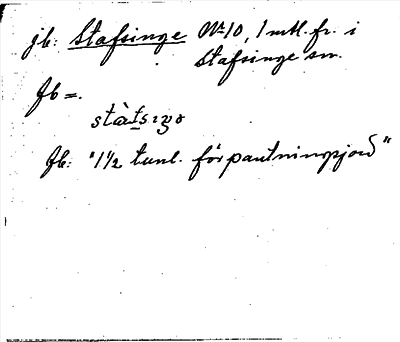 jb: Stafsinge No 10, 1 mtl. fr. i
Stafsinge sn.
Jb =.
Jb: "1 1/2 tunl. förpantningsjord"